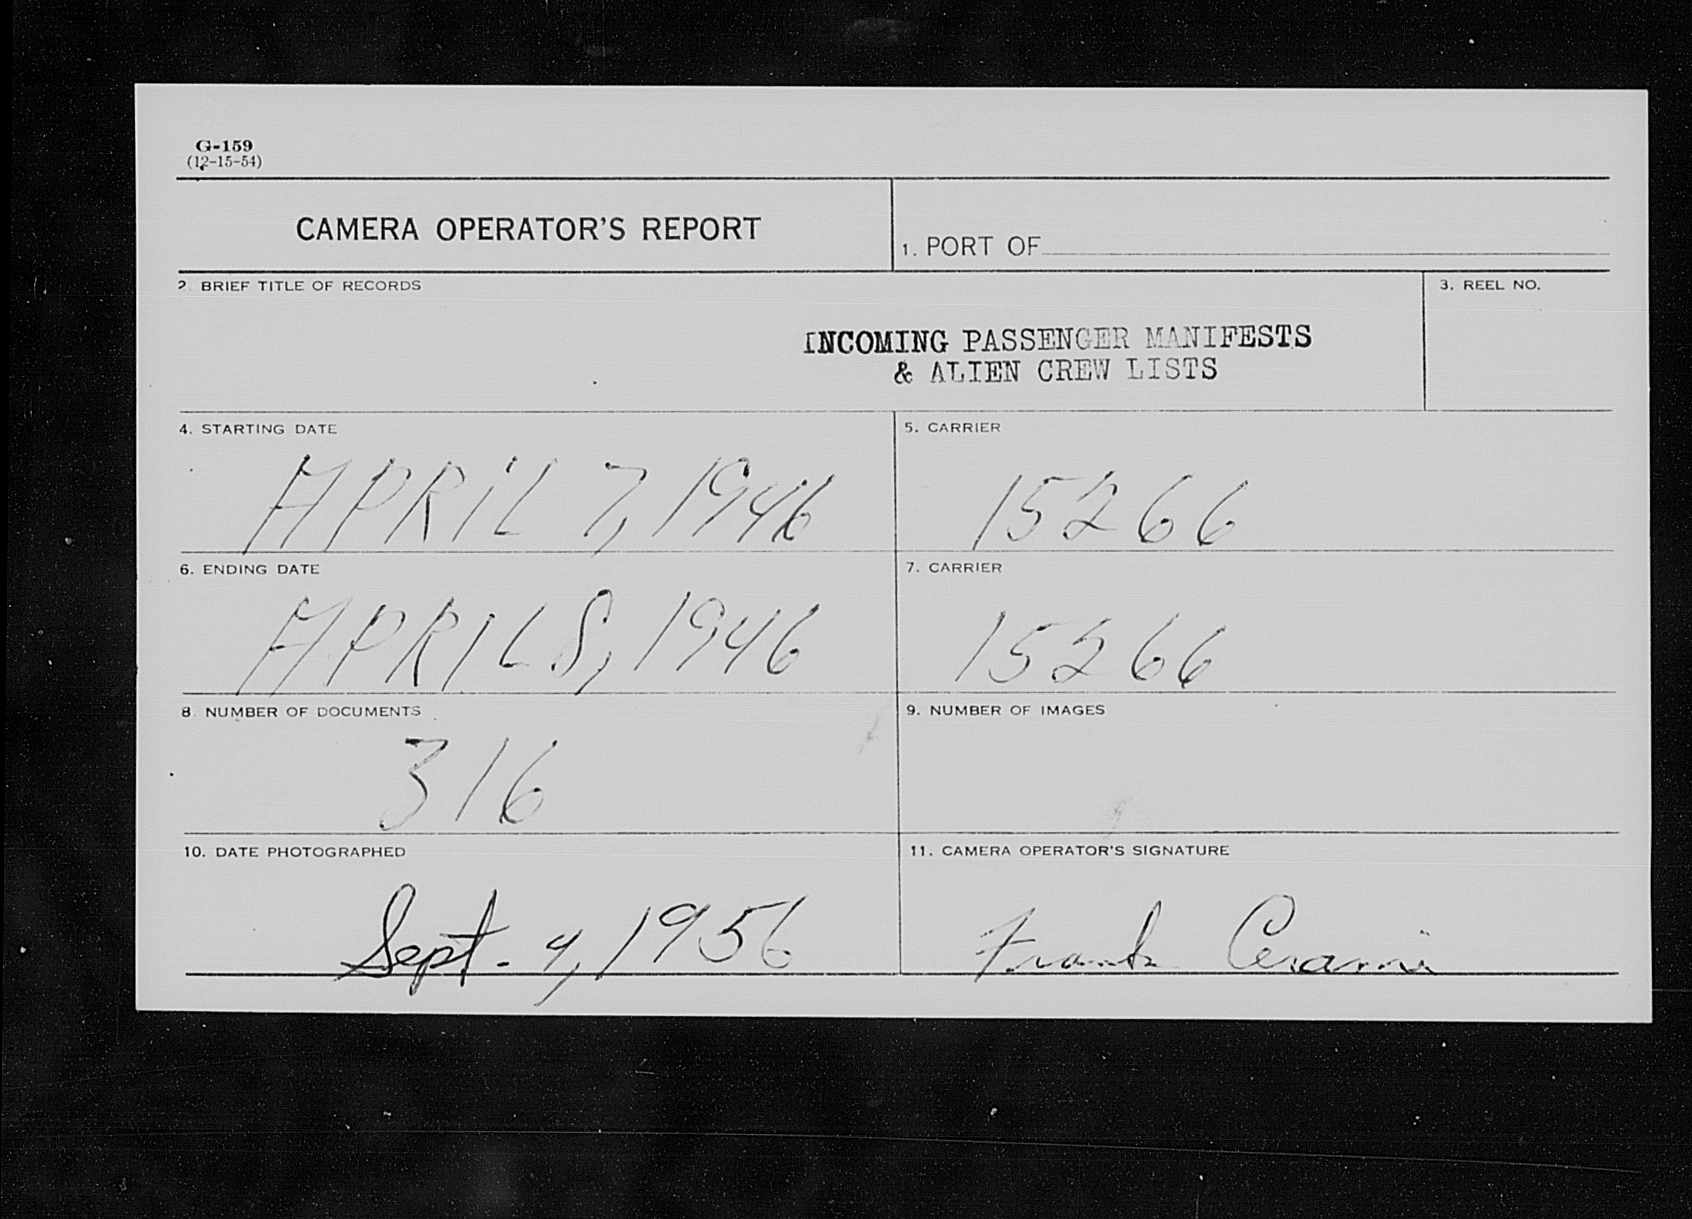 G-159
(12-15-54)
CAMERA OPERATOR'S REPORT
1. PORT OF
2 BRIEF TITLE OF RECORDS
INCOMING PASSENGER MANIFESTS
& ALIEN CREW LISTS
3. REEL NO.
4. STARTING DATE
APRIL 7, 1946
5. CARRIER
15266
6. ENDING DATE
APRIL 8, 1946
7. CARRIER
15266
8 NUMBER OF DOCUMENTS
316
9. NUMBER OF IMAGES
10. DATE PHOTOGRAPHED
Sept. 4, 1956
11. CAMERA OPERATOR'S SIGNATURE
Frank Cerami